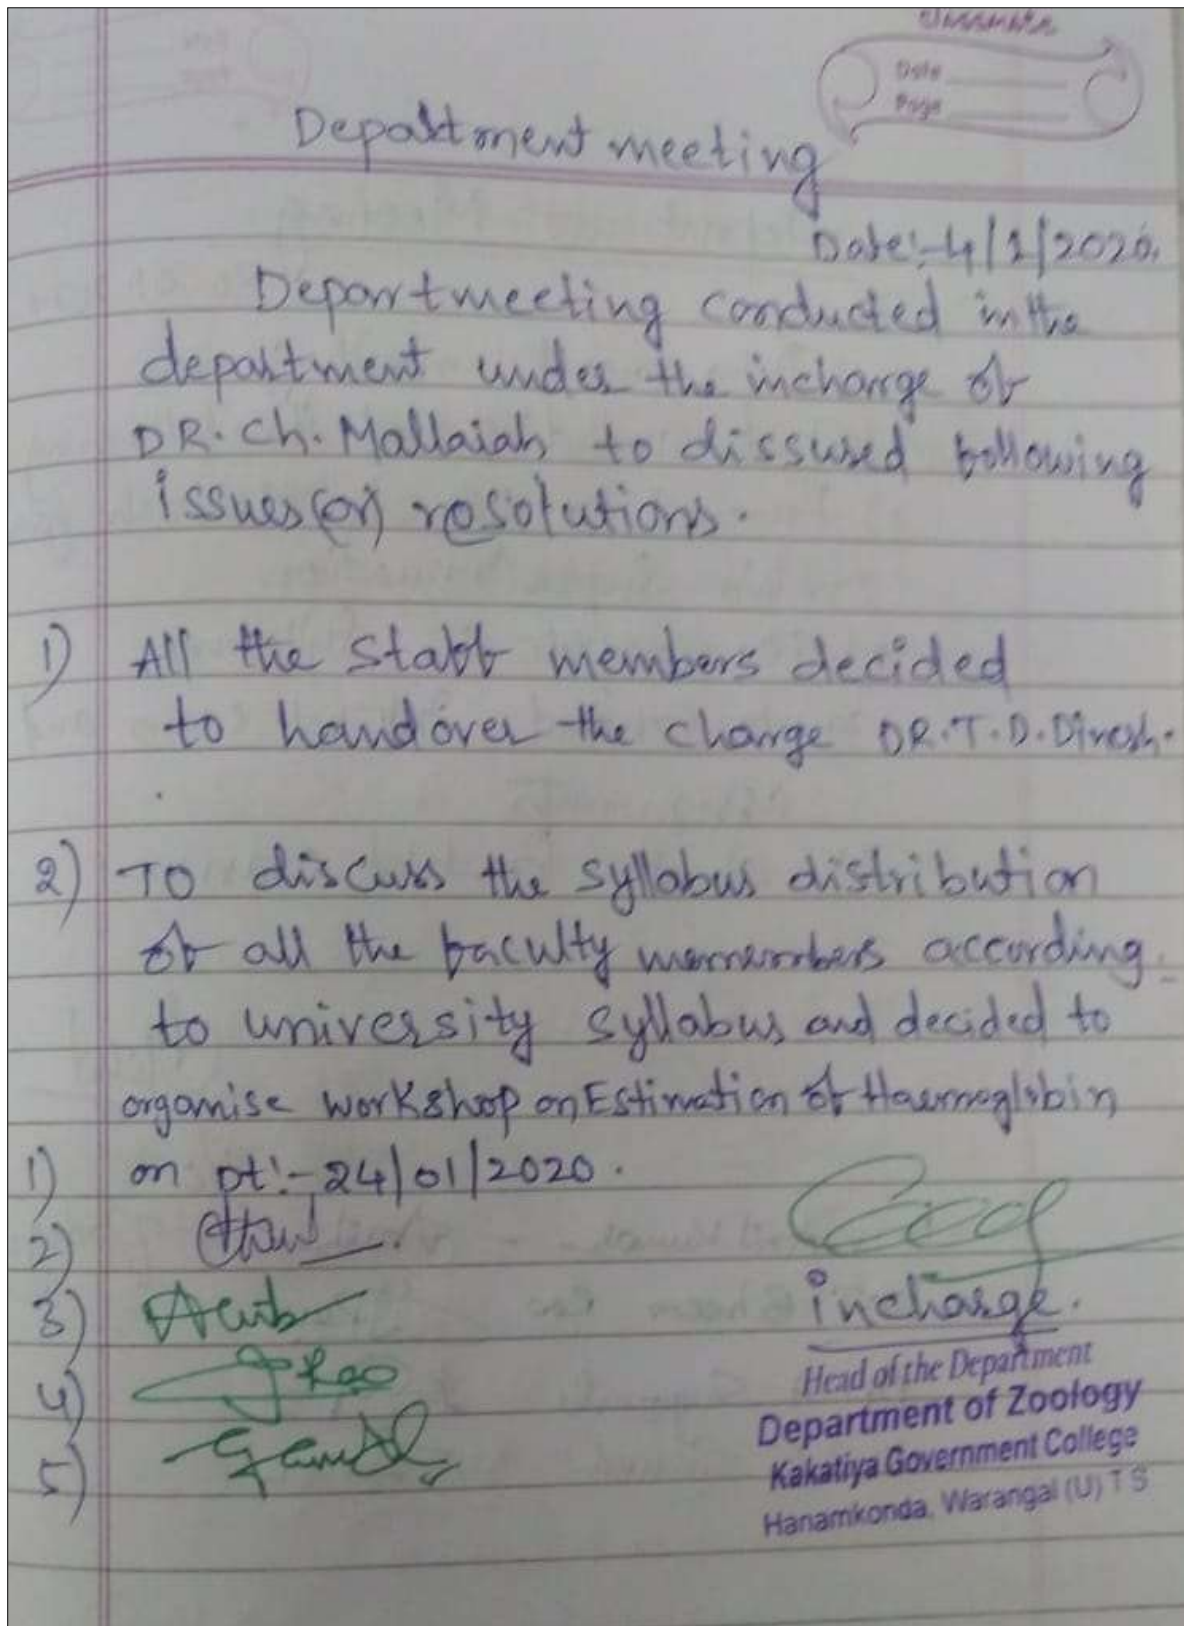 classmate
Date
Page
Department meeting
Date:-4/1/2020.
Departmeeting conducted in the
department under the incharge of
DR. Ch. Mallaiah to dissused following
issues(or) resolutions.
1) All the staff members decided
to handover the charge DR.T.D.Dinesh.
2) To discuss the syllabus distribution
of all the faculty according
to university syllabus and decided to
organise workshop on Estimation of Haemoglobin
1) on Dt:-24/01/2020.
2)
3)
incharge.
4) Rao
Head of the Department
Department of Zoology
5)
Kakatiya Government College
Hanamkonda, Warangal (U) T S